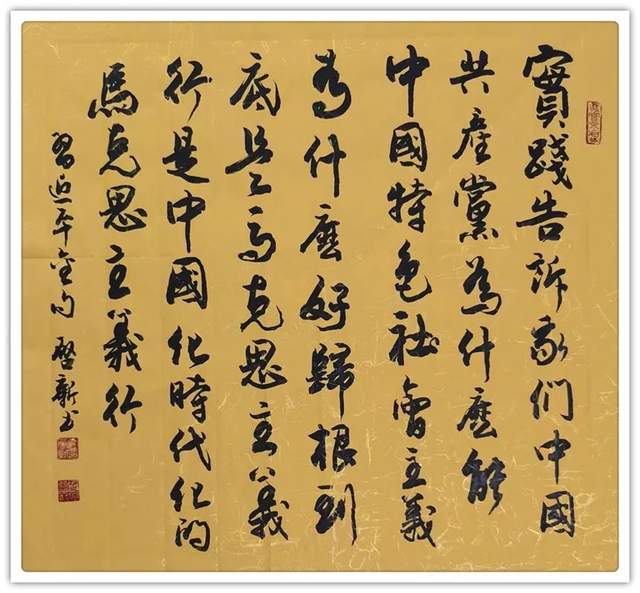 實踐告訴我們中國
共產黨為什麼能
中國特色社會主義
為什麼好歸根到
底是馬克思主義
行是中國化時代化的
馬克思主義行
習近平金句 啟新书